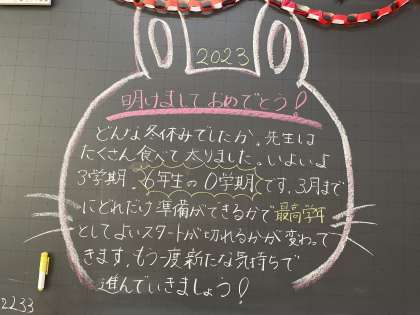 2023
明けましておめでとう！
どんな冬休みでしたか。先生は
たくさん食べて太りました。いよいよ
3学期。6年生の0学期です。3月まで
にどれだけ準備ができるかで最高学年
としてよいスタートが切れるかが変わって
きます。もう一度新たな気持ちで
進んでいきましょう！
2233